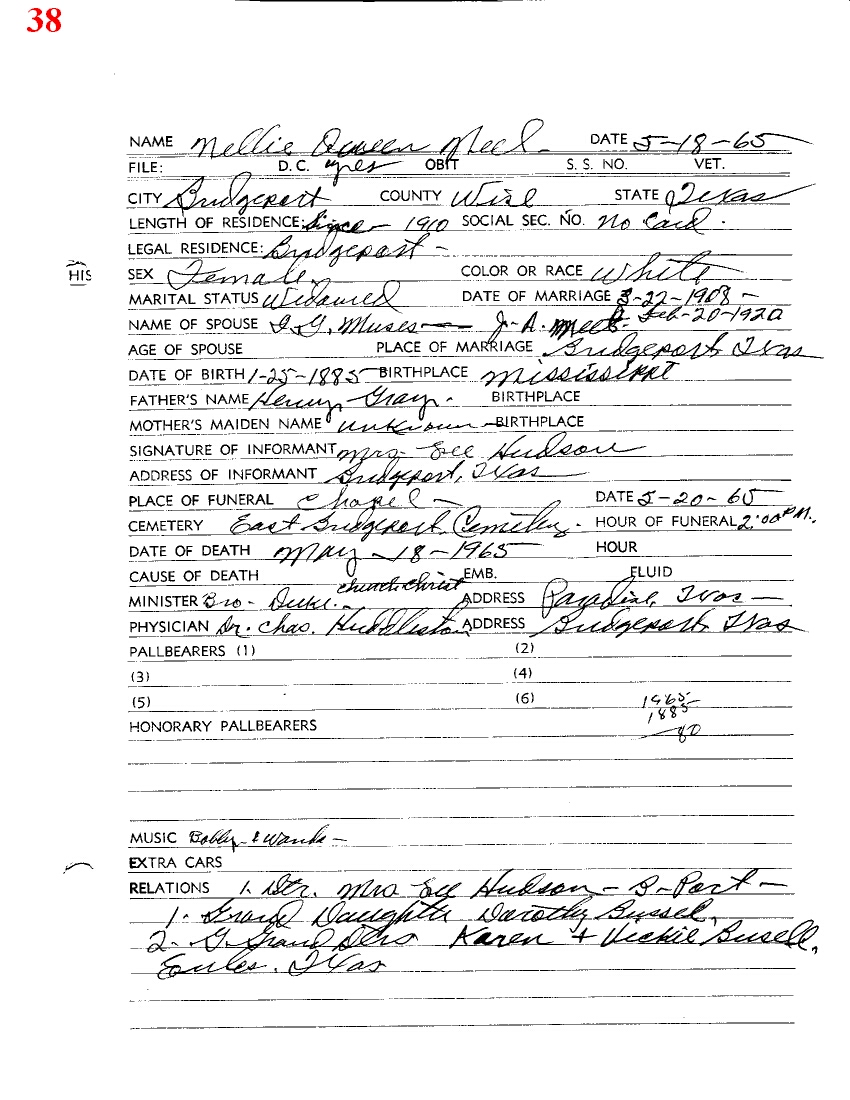 38
NAME Nellie Queen Meek DATE 5-18-65
FILE: D.C. yes OBIT S. S. NO. VET.
CITY Bridgeport COUNTY Wise STATE Texas
LENGTH OF RESIDENCE: Since - 1910 SOCIAL SEC. NO. No Card.
LEGAL RESIDENCE: Bridgeport -
HIS
SEX Female COLOR OR RACE White
MARITAL STATUS Widowed DATE OF MARRIAGE 3-22-1908 -
NAME OF SPOUSE Muses - J. A. Meek - Feb-20-1920
AGE OF SPOUSE PLACE OF MARRIAGE Bridgeport, Texas
DATE OF BIRTH 1-25-1885 BIRTHPLACE Mississippi
FATHER'S NAME Henry Gray. BIRTHPLACE
MOTHER'S MAIDEN NAME unknown - BIRTHPLACE
SIGNATURE OF INFORMANT Mrs. Hudson
ADDRESS OF INFORMANT Bridgeport, Texas
PLACE OF FUNERAL Chapel - DATE 5-20-65
CEMETERY East Bridgeport Cemetery. HOUR OF FUNERAL 2:00 P.M.
DATE OF DEATH May - 18 - 1965 HOUR
CAUSE OF DEATH EMB. FLUID
church Christ
MINISTER Bro - Duke. - ADDRESS Paradise, Texas -
PHYSICIAN Dr. Chas. Huddleston ADDRESS Bridgeport, Texas
PALLBEARERS (1) (2)
(3) (4)
(5) (6) 1965
1885
80
HONORARY PALLBEARERS
MUSIC Bobby & Wanda -
EXTRA CARS
RELATIONS 1. Dtr. Mrs Hudson - B-Port -
1. Grand Daughter Dorothy Bussel,
2 - G. Grand Dtrs Karen + Vickie Busell,
Eules. Texas